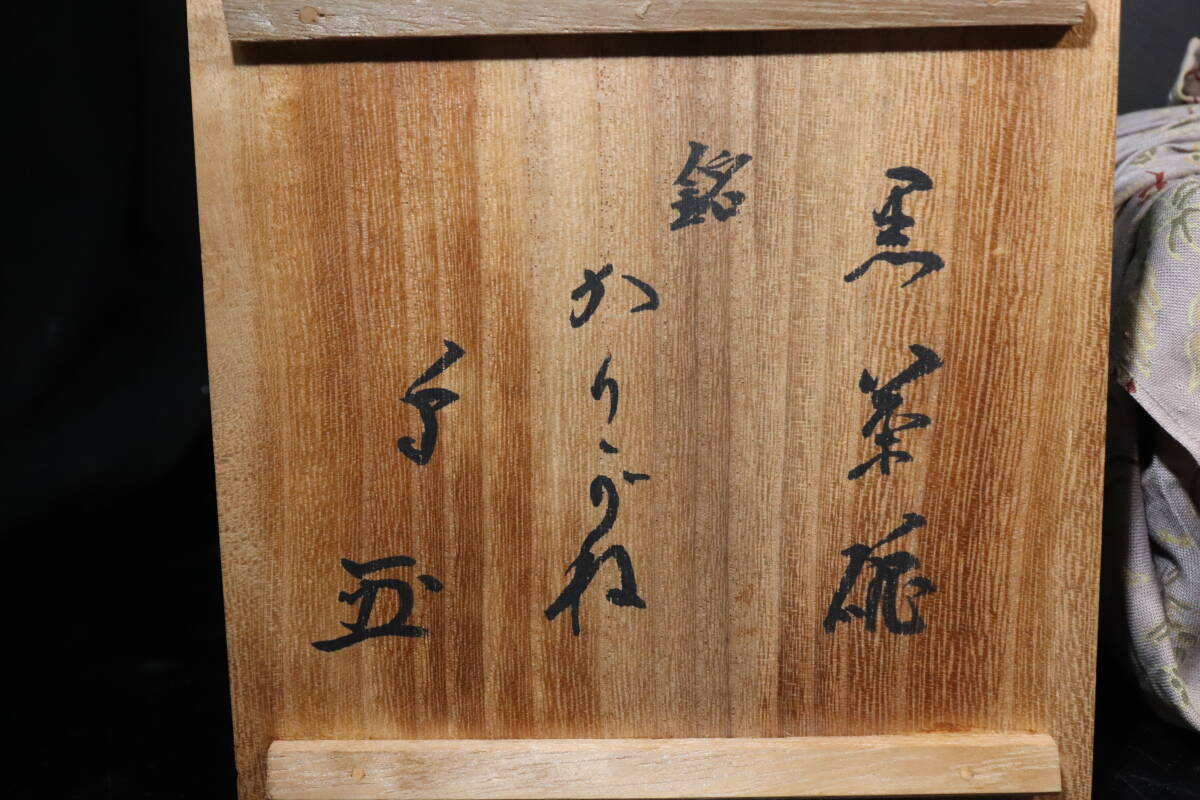 黒茶碗
銘
かりがね